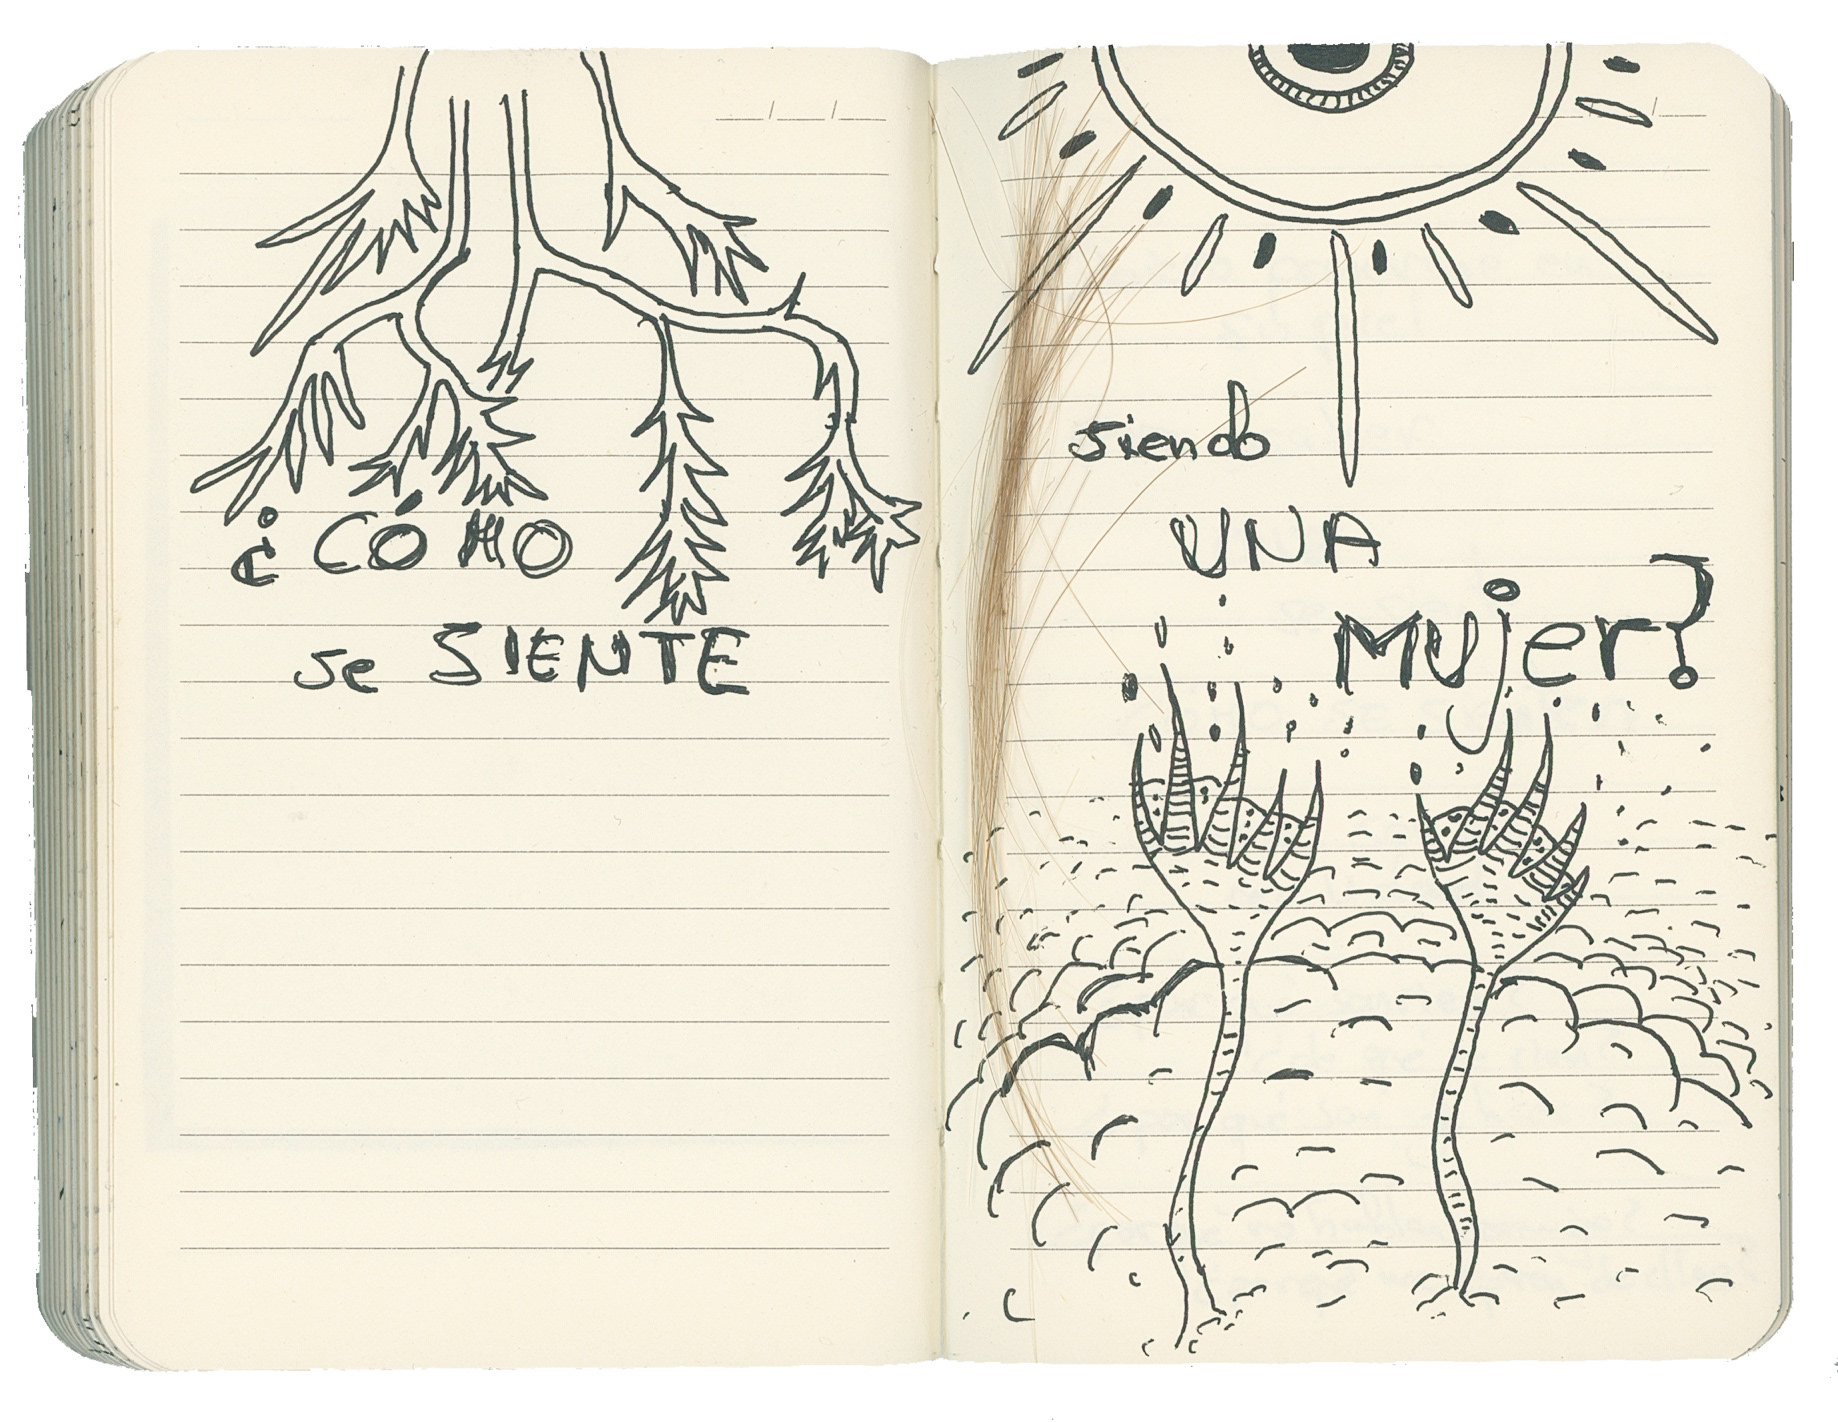 ¿CÓMO
se SIENTE
siendo
UNA
Mujer?